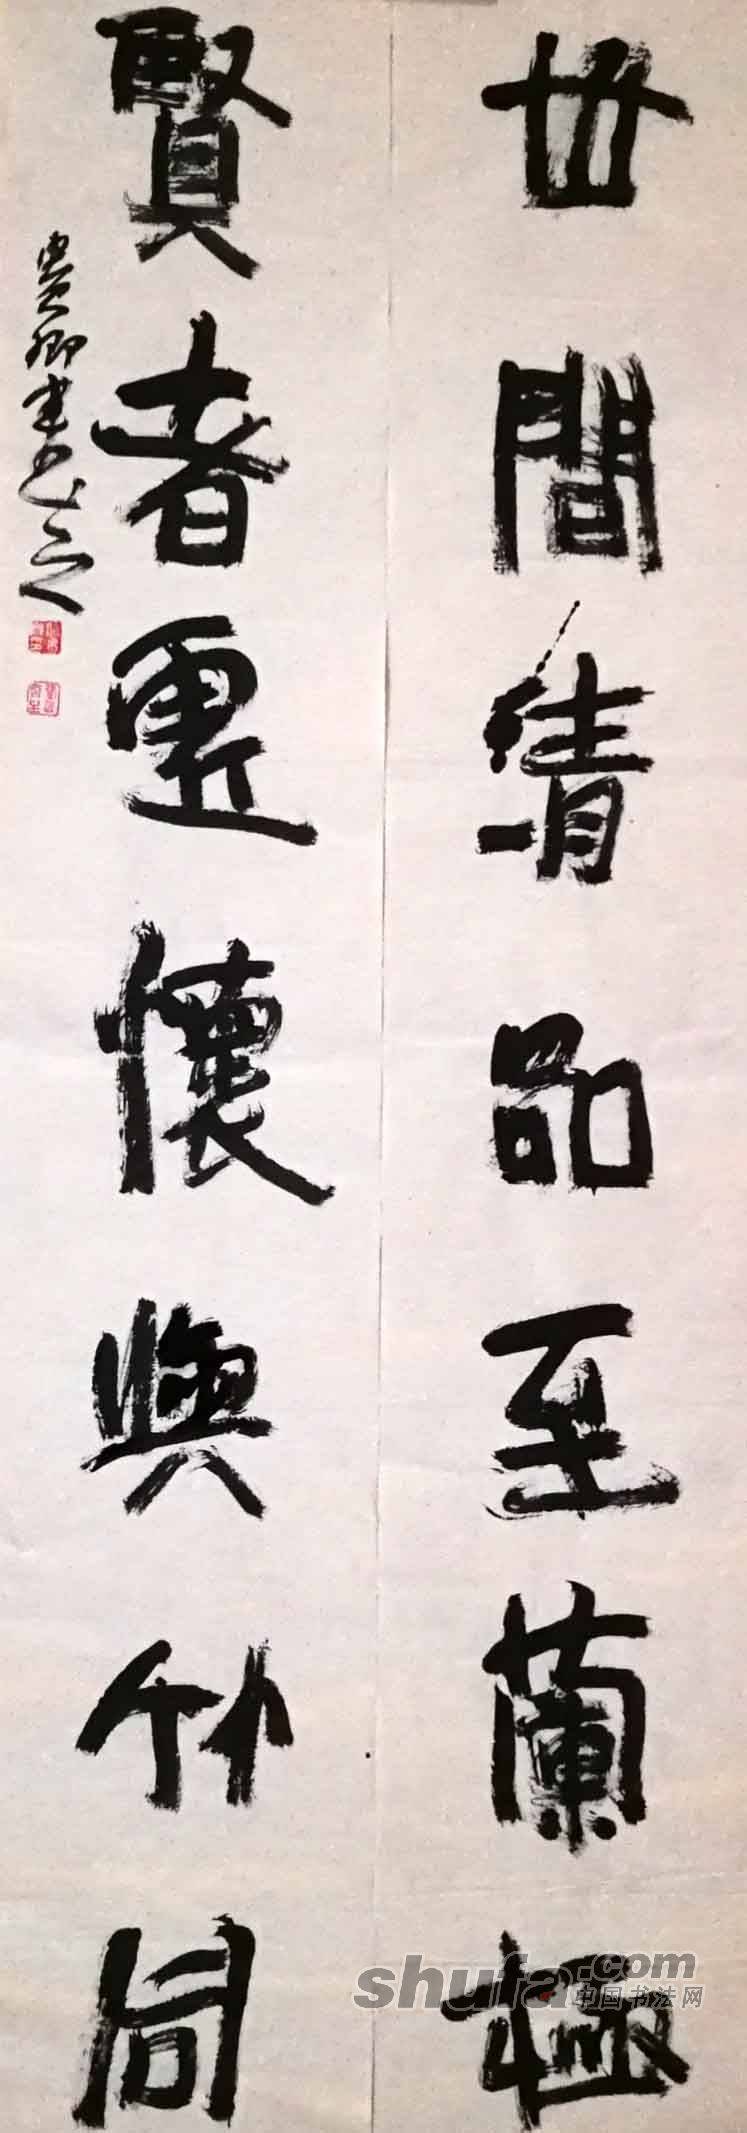 世間清品至蘭極
賢者虛懷與竹同
shufa.com
中国书法网